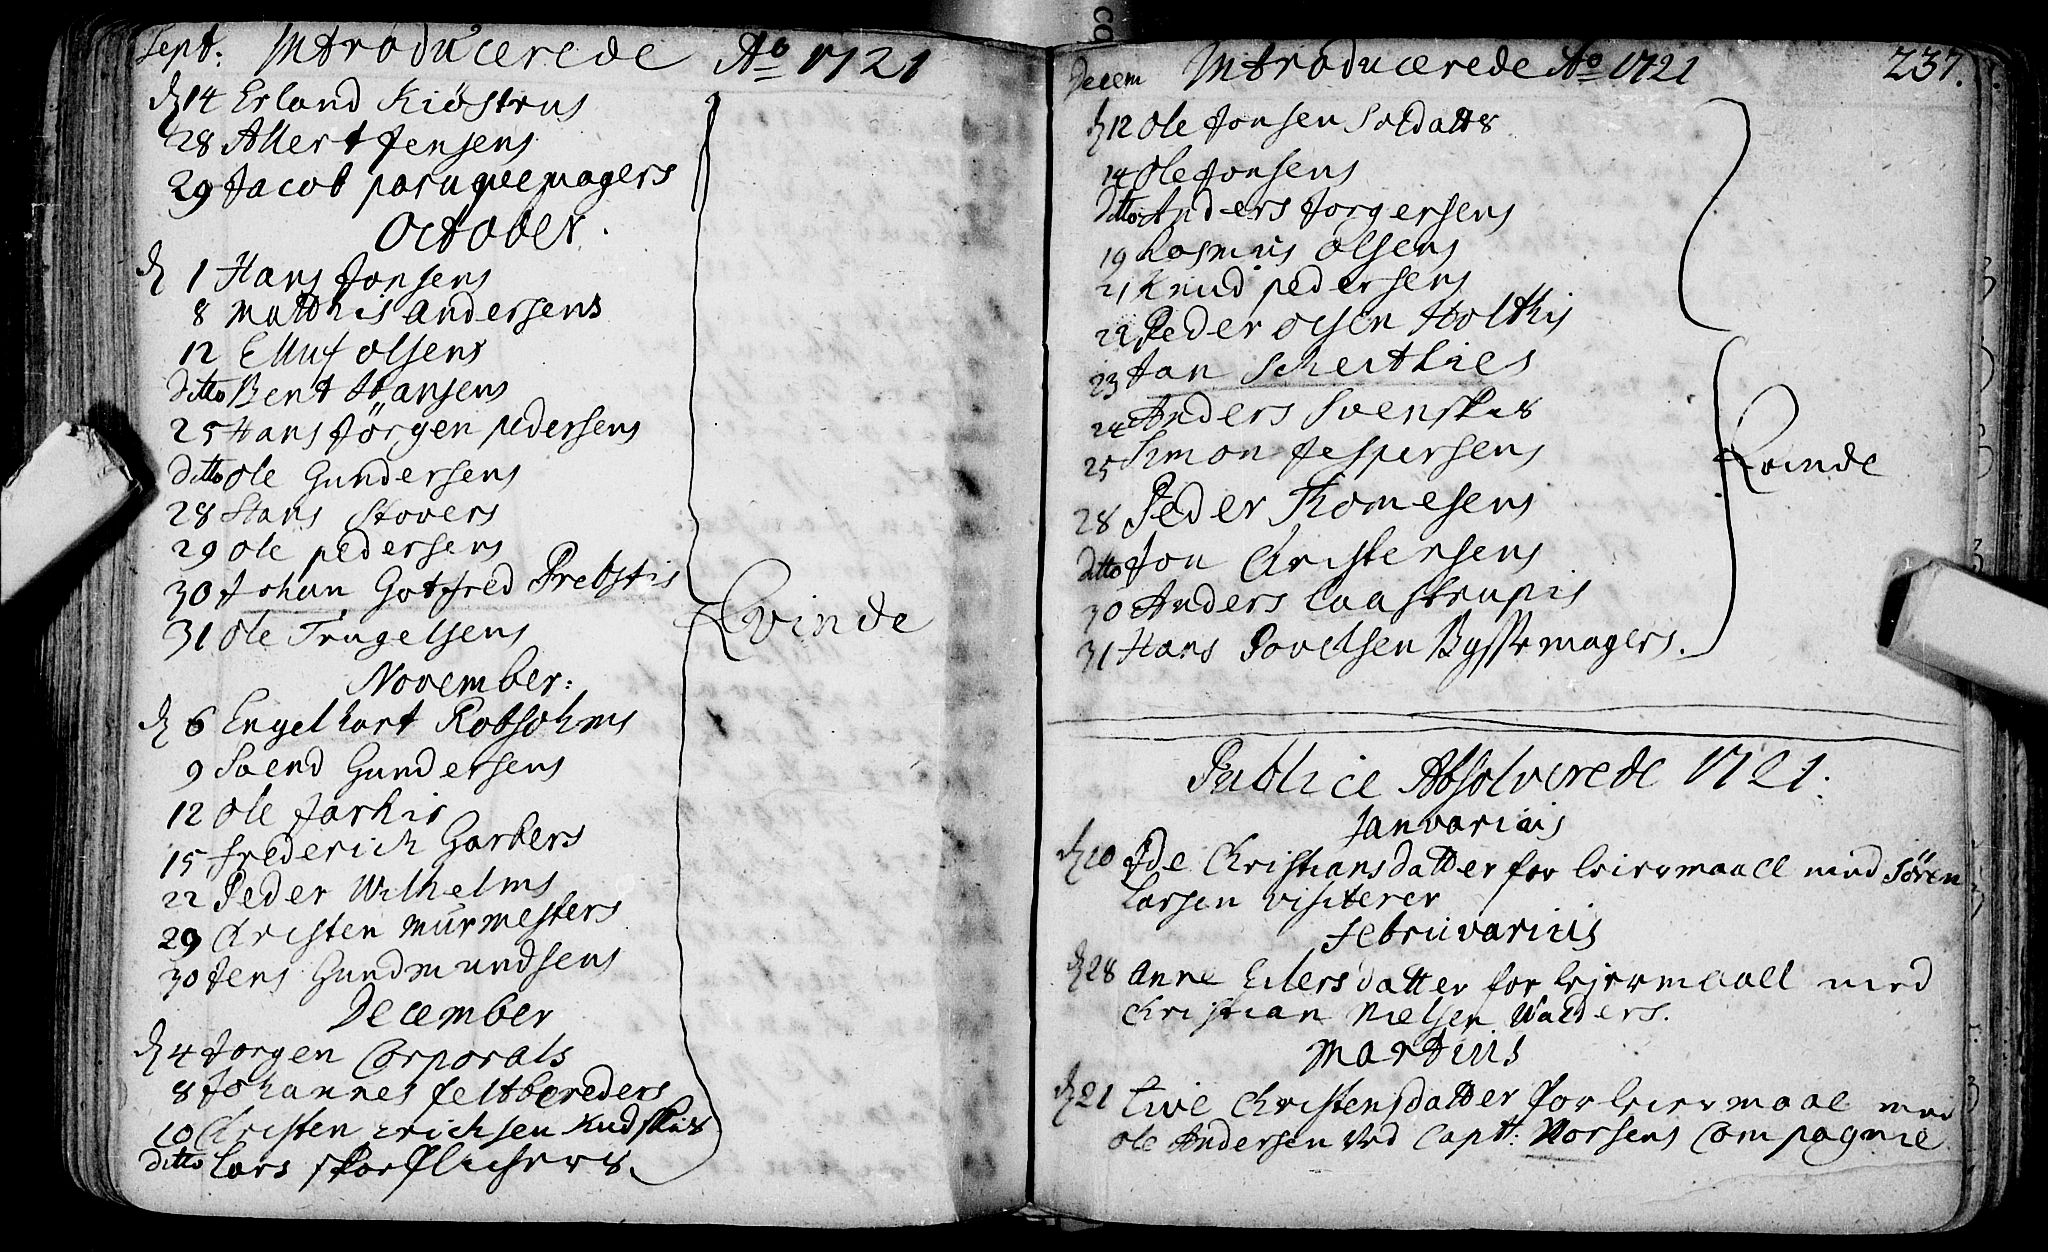 Sept: Introducerede Ao 1721
d 14 Erland Kiöstrus
28 Allert Jensens
29 Jacob paruqvemagers
October.
d 1 Hans Jonsens
8 Matthis Andersens
12 Elluf Olsens
ditto Bent Hansens
25 Hans Jörgen pedersens
ditto Ole Gundersens
28 Hans Stovers
29 Ole pedersens
30 Johan Gotfred Prebstis
31 Ole Trugelsens
Kvinde
November:
d 6 Engelhart Robsohms
9 Svend Gundersens
12 Ole Jarkis
15 Frederich Garbers
22 Peder Wilhelms
29 Christen Murmesters
30 Jens Gundmundsens
December
d 4 Jorgen Corporals
8 Johannes feltbereders
10 Christen Erichsen Kudskis
ditto Lars
Decem Introducerede Ao 1721 237.
d 12 Ole Jonsen Soldatts
14 Ole Jonsens
ditto Anders Jorgensens
19 Rasmus Olsens
21 Knud pedersens
22 Peder Olsen Holthis
23 Jan
24 Anders Svenskis
25 Simon Jespersens
Kvinde
28 Peder Thomesens
ditto Jon Christensens
30 Anders Caastrupis
31 Hans Povelsen Byssemagers.
Publice Absolverede 1721.
Januarius
d 10 Ide Christiansdatter for Leiermaall med Sören
Larsen visiterer
Februarius
d 28 Anne Eilersdatter for Leiermaall med
Christian Nielsen Walders.
Martius
d 21 Live Christensdatter for Leiermaal med
Ole Andersen ved Capt: Norsens Compagnie